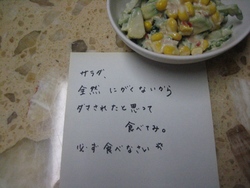 サラダ、
全然 にがくないから
ダマされたと思って
食べてみ。
必ず食べなさい